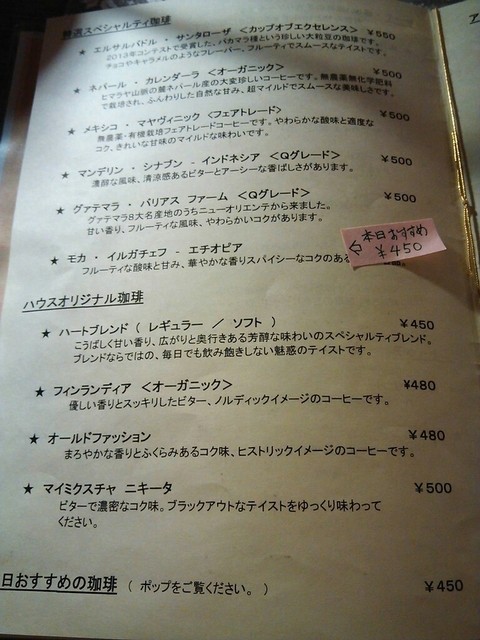 特選スペシャルティ珈琲
★ エルサルバドル ・ サンタローザ <カップオブエクセレンス> ￥550
2013年コンテストで受賞した、パカマラ種という珍しい大粒豆の珈琲です。
チョコやキャラメルのようなフレーバー、フルーティでスムースなテイストです。
★ ネパール ・ カレンダーラ <オーガニック> ￥500
ヒマラヤ山脈の麓ネパール産の大変珍しいコーヒーです。無農薬無化学肥料
で栽培され、ふんわりした自然な甘み、超マイルドでスムースな美味しさです。
★ メキシコ ・ マヤヴィニック <フェアトレード> ￥500
無農薬・有機栽培フェアトレードコーヒーです。やわらかな酸味と適度な
コク、きれいな甘味のマイルドな味わいです。
★ マンデリン ・ シナブン - インドネシア <Qグレード> ￥500
濃醇な風味、清涼感あるビターとアーシーな香ばしさがあります。
★ グァテマラ ・ バリアス ファーム <Qグレード> ￥500
グァテマラ8大名産地のうちニューオリエンテから来ました。
甘い香り、フルーティな風味、やわらかいコクがあります。
★ モカ ・ イルガチェフ - エチオピア
フルーティな酸味と甘み、華やかな香りスパイシーなコクのある
本日おすすめ
￥450
ハウスオリジナル珈琲
★ ハートブレンド ( レギュラー ／ ソフト ) ￥450
こうばしく甘い香り、広がりと奥行きある芳醇な味わいのスペシャルティブレンド。
ブレンドならではの、毎日でも飲み飽きしない魅惑のテイストです。
★ フィンランディア <オーガニック> ¥480
優しい香りとスッキリしたビター、ノルディックイメージのコーヒーです。
★ オールドファッション ￥480
まろやかな香りとふくらみあるコク味、ヒストリックイメージのコーヒーです。
★ マイミクスチャ ニキータ ￥500
ビターで濃密なコク味。ブラックアウトなテイストをゆっくり味わって
ください。
日おすすめの珈琲 ( ポップをご覧ください。 ) ￥450